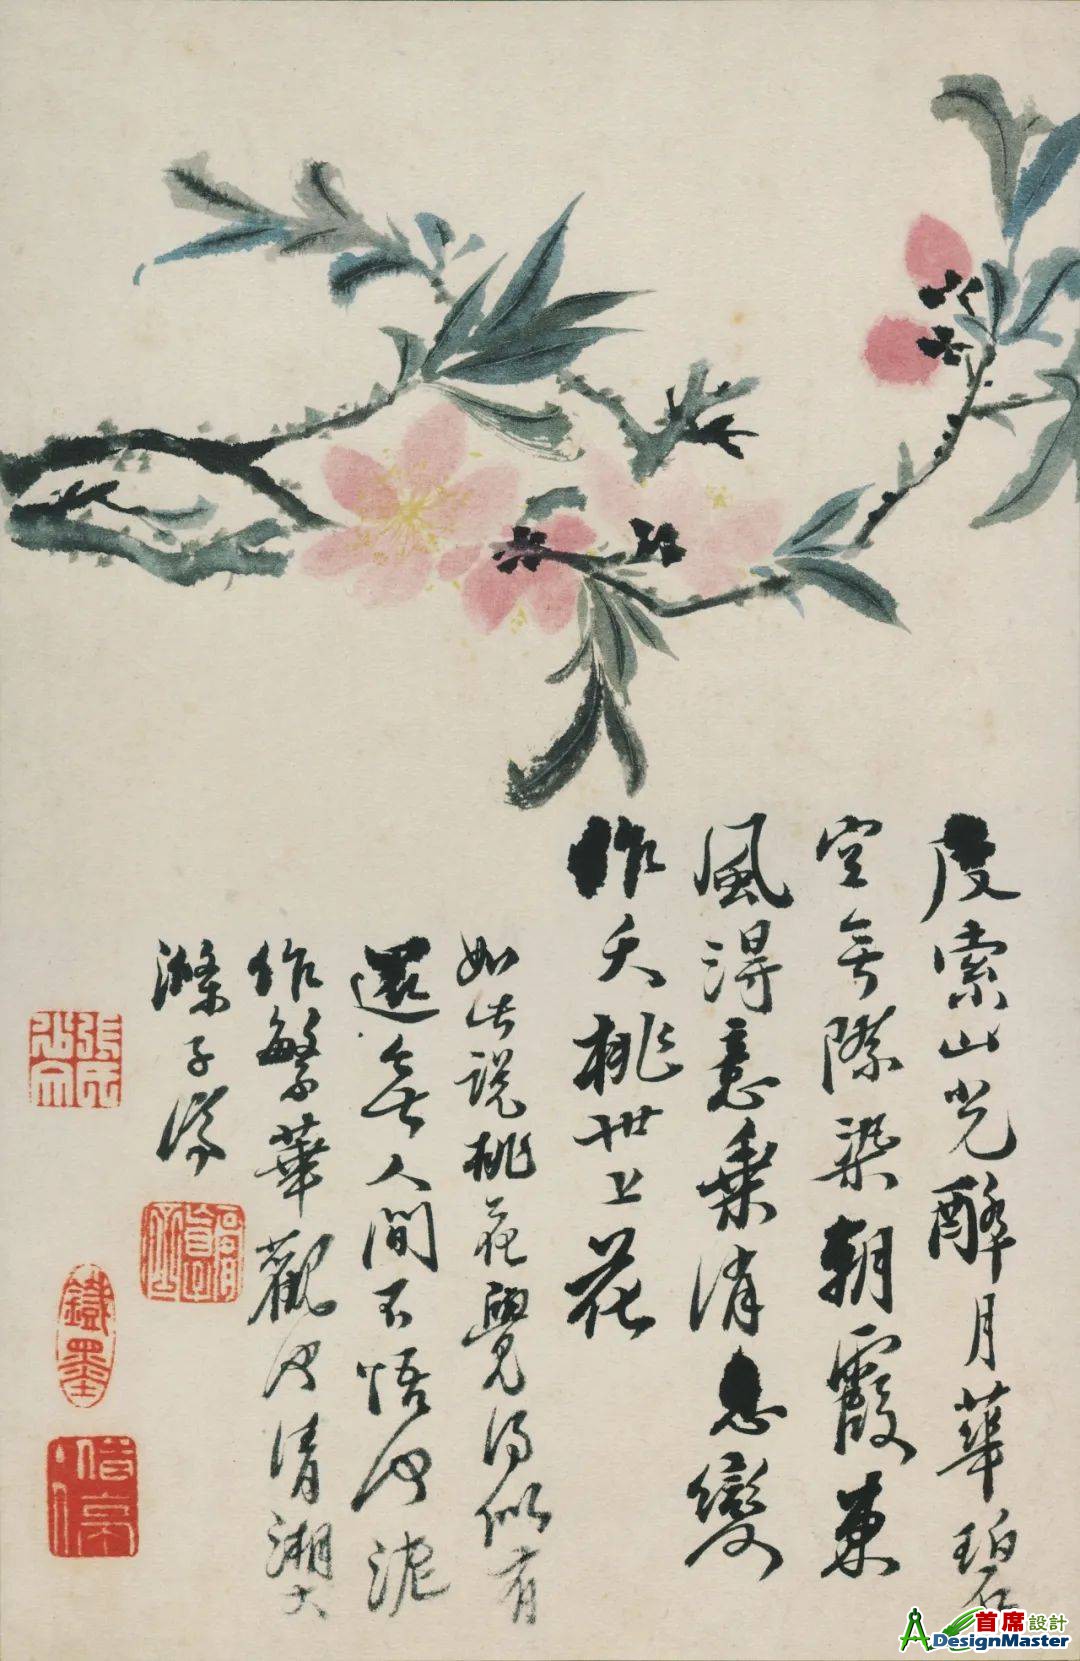 度索山光醉月華碧
空無際染朝霞東
風得意乘消息變
作夭桃世上花
如此說桃花覺得似有
還無人間不悟何泥
作繁華觀也清湘大
滌子濟
鐵墨
首席設計
DesignMaster